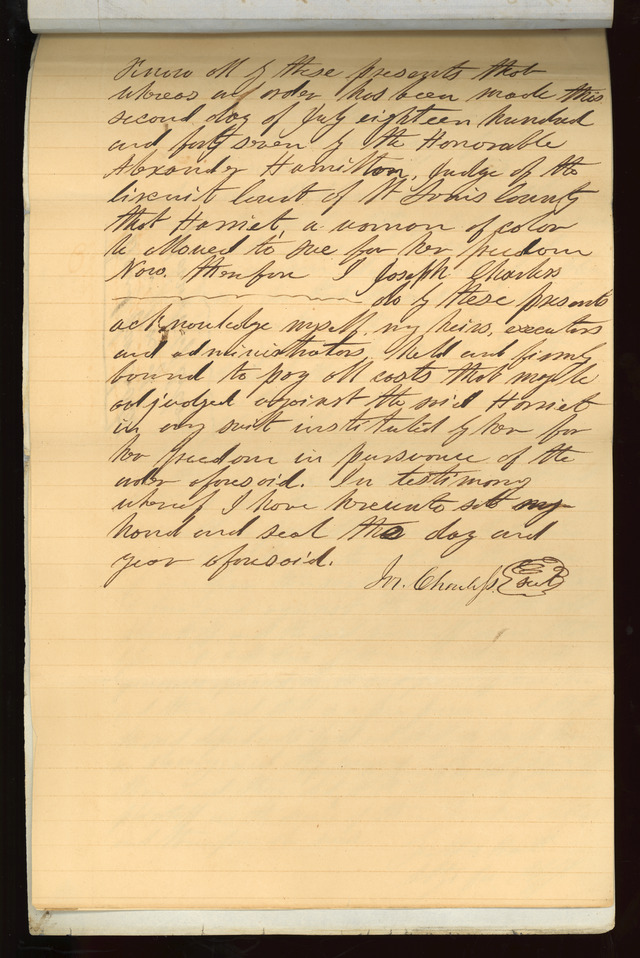 Know all by these presents that
whereas an order has been made this
second day of July eighteen hundred
and forty seven by the Honorable
Alexander Hamilton, Judge of the
Circuit Court of St Louis County
that Harriet, a woman of color
be allowed to sue for her freedom
Now. therefore I Joseph Charless
do by these presents
acknowledge myself, my heirs, executors
and administrators, held and firmly
bound to pay all costs that may be
adjudged against the said Harriet
in any suit instituted by her for
her freedom in pursuance of the
order aforesaid. In testimony
whereof I have hereunto set my
hand and seal the day and
year aforesaid.
Jos. Charless. Seal